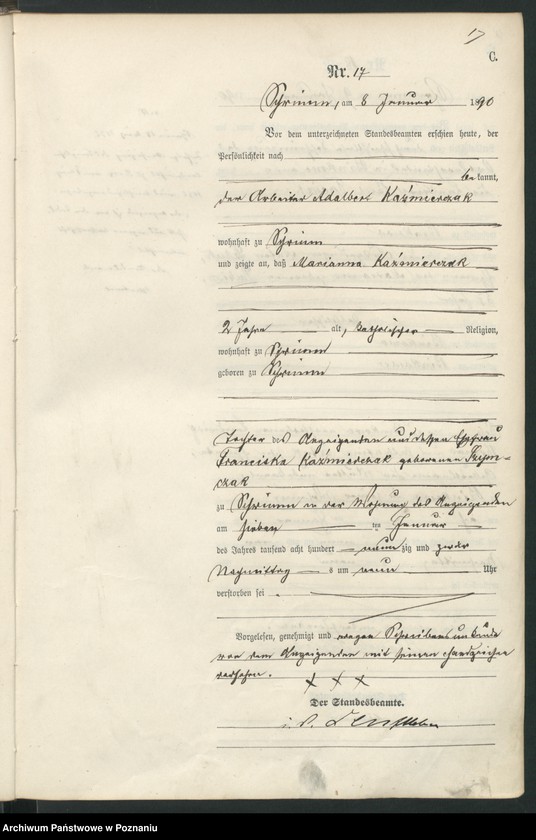 17
C.
Nr. 17
Schrimm, am 8 Januar 1890
Vor dem unterzeichneten Standesbeamten erschien heute, der
Persönlichkeit nach
bekannt,
der Arbeiter Adalbert Kaźmierczak
wohnhaft zu Schrimm
und zeigte an, daß Marianna Kaźmierczak
2 Jahre alt, katholischer Religion,
wohnhaft zu Schrimm
geboren zu Schrimm
Tochter des Anzeigenden und dessen Ehefrau
Franciska Kaźmierczak geborenen
czak
zu Schrimm in der Wohnung des Anzeigenden
am sieben ten Januar
des Jahres tausend acht hundert neunzig und zwar
Nachmittags um neun Uhr
verstorben sei
Vorgelesen, genehmigt und wegen Schreibensunkunde
von dem Anzeigenden mit seinem Handzeichen
versehen.
+ + +
Der Standesbeamte.
i. V.
Archiwum Państwowe w Poznaniu